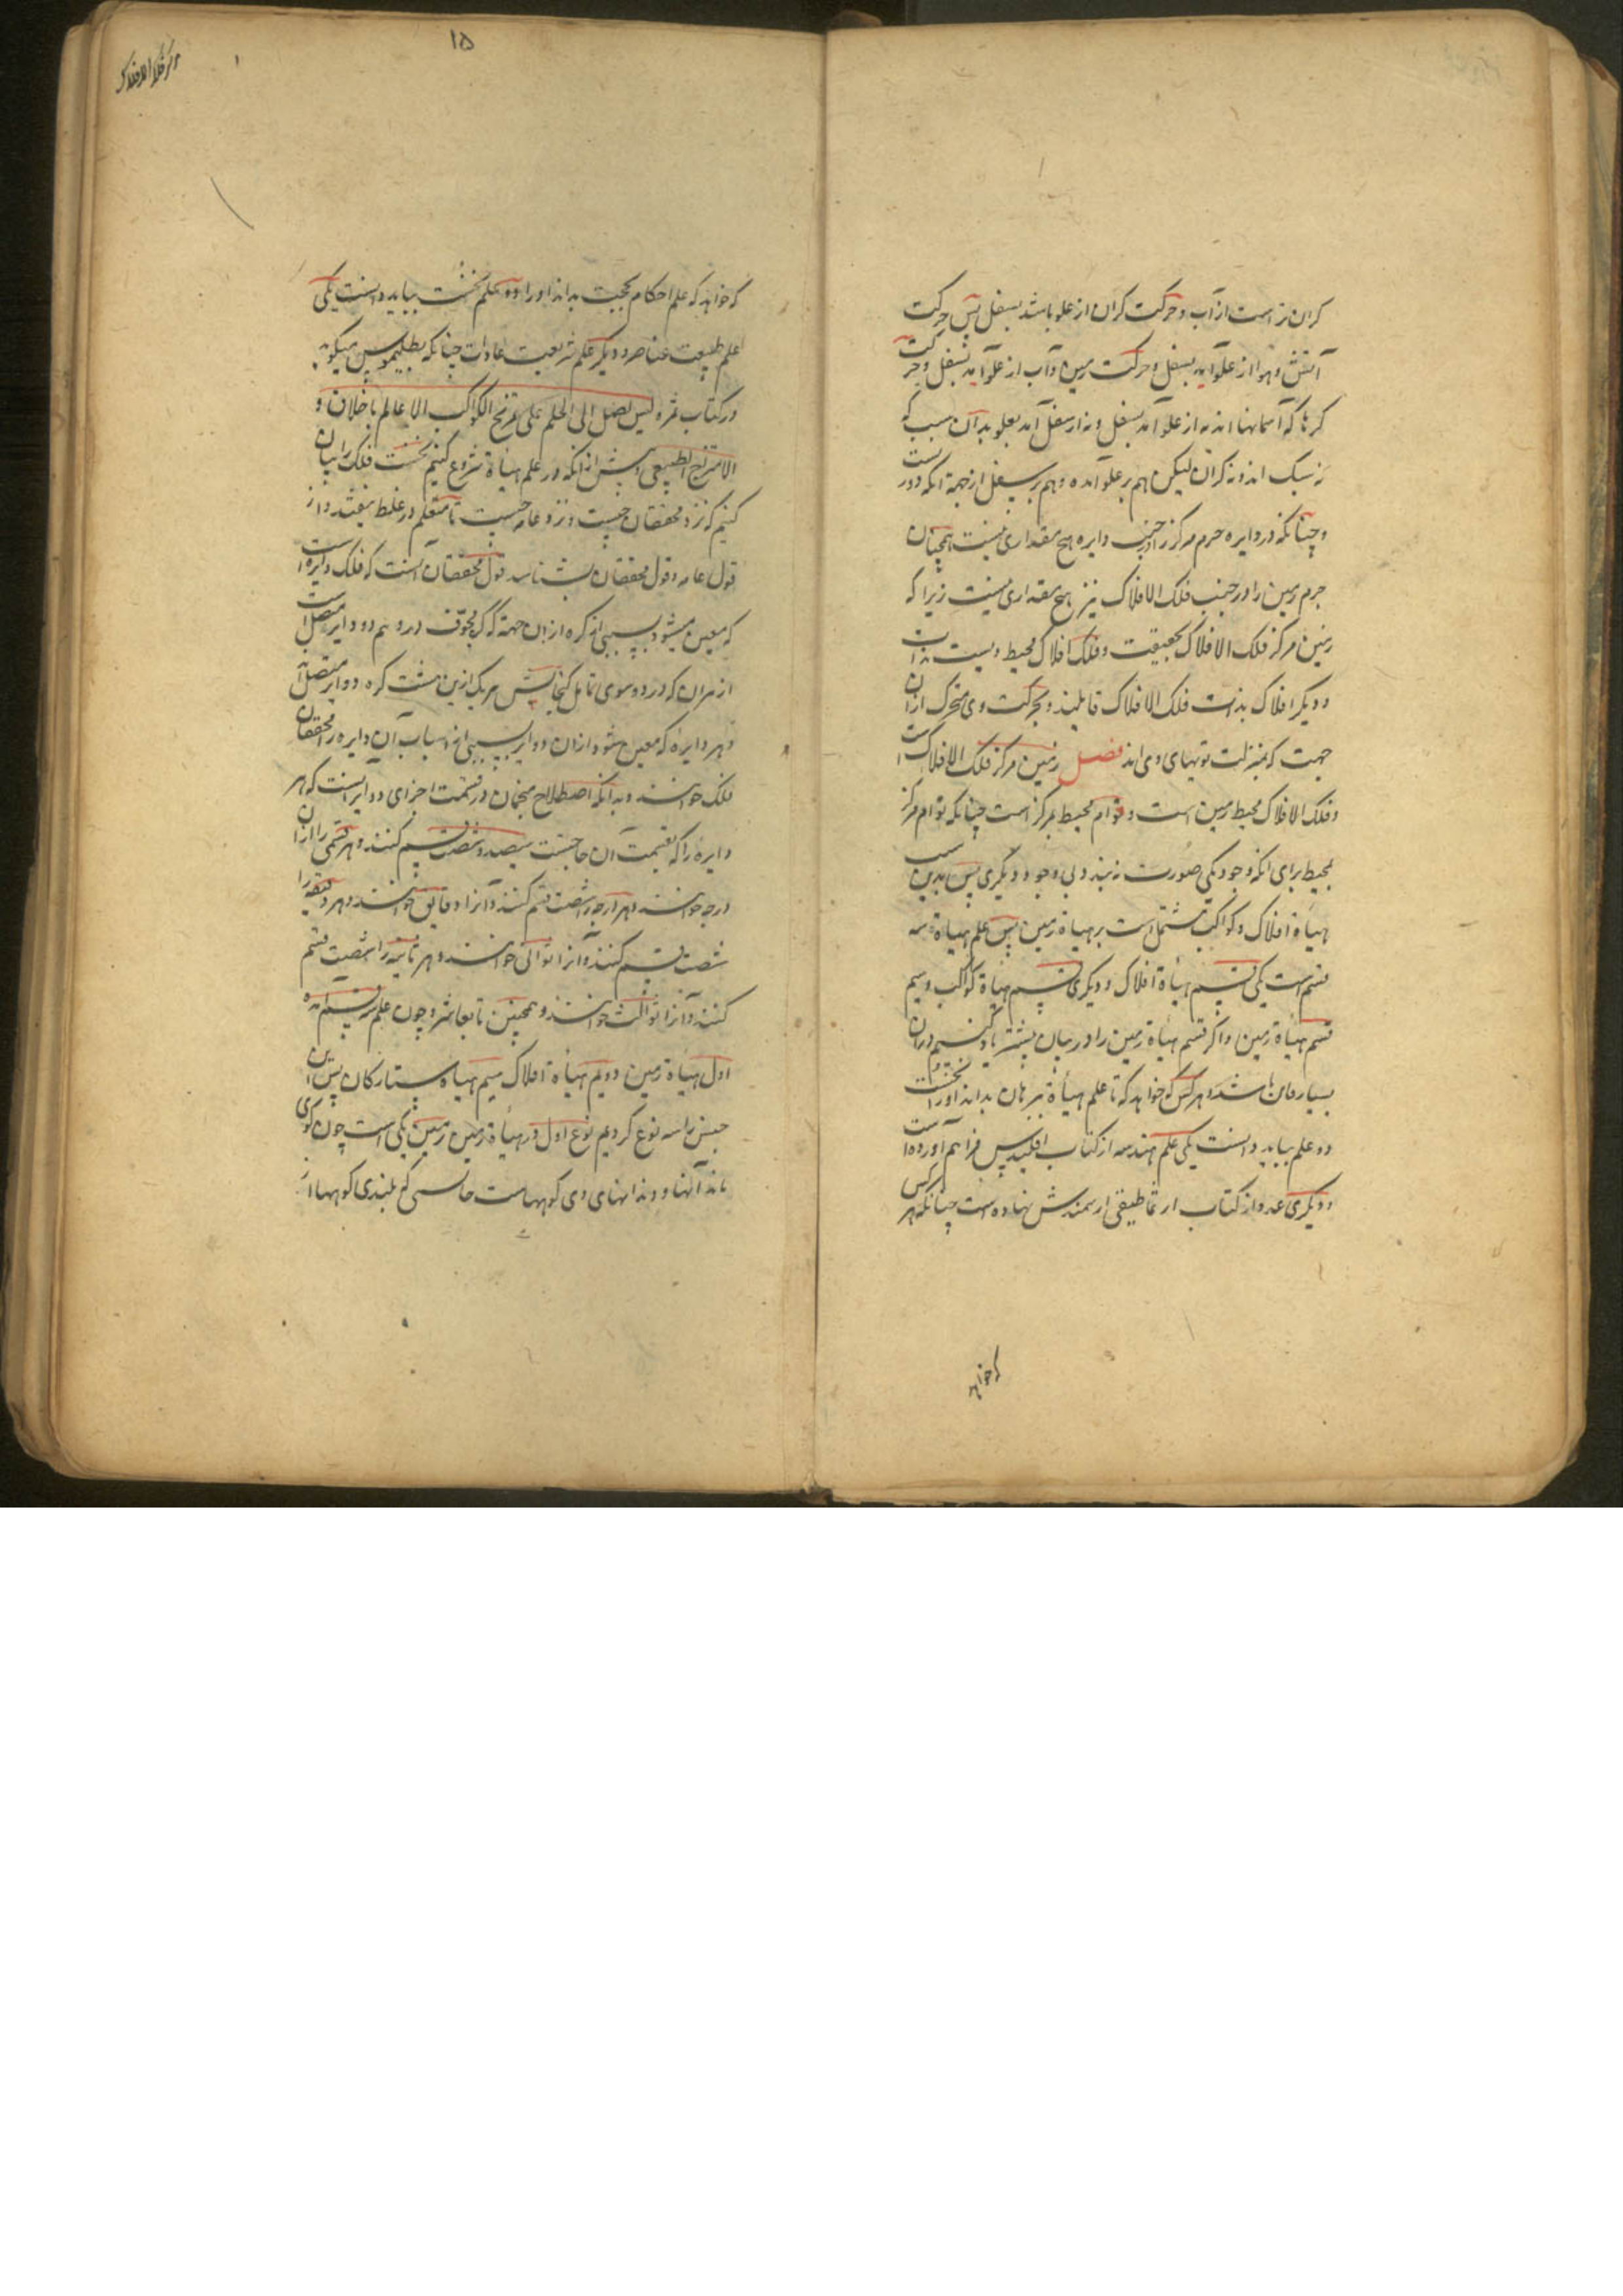 کران تر است از آب و حرکت کران از علو باشد بسفل پس حرکت
آتش و هوا از علو آید بسفل و حرکت زمین و آب از علو آید بسفل و حرکت
کرها که آسمانها اند نه از علو آمد بسفل و نه از سفل آمد بعلو بدان سبب که
نه سبک اند و نه کران لیکن هم بر علو آمده و هم بر سفل از جهة آنکه دور است
و چنانکه در دایره جرم مرکز را در جنب دایره هیچ مقداری نیست همچنان
جرم زمین را در جنب فلک الافلاک نیز هیچ مقداری نیست زیرا که
زمین مرکز فلک الافلاک بحقیقت و فلک افلاک محیط ویست بذات
و دیگر افلاک بذات فلک الافلاک قایلند و بحرکت وی متحرک ازان
جهت که بمنزلت تویهای وی اند فصل زمین مرکز فلک الافلاک است
و فلک الافلاک محیط زمین است و قوام محیط بمرکز است چنانکه قوام مرکز
بمحیط برای آنکه وجود یکی صورت نبندد بی وجود دیگری پس بدین سبب
هیأة افلاک و کواکب مشتمل است بر هیأة زمین پس علم هیأة سه
قسم است یکی قسم هیأة افلاک و دیگری قسم هیأة کواکب و سیم
قسم هیأة زمین و اگر قسم هیأة زمین را در بیان پیشتر یاد کنیم دران
بسیار باشد و هر کس که خواهد که تا علم هیأة ببرهان بداند او را نخست
دو علم بباید دانست یکی علم هندسه از کتاب اقلیدس فراهم آورده است
و دیگری عدد از کتاب ارثماطیقی نهاده است چنانکه هر کس
که خواهد
۱۵
مرکز فلک الافلاک
که خواهد که علم احکام بحجت بداند او را دو علم نخست بباید دانست یکی
علم طبیعت عناصر و دیگر علم شریعت عادات چنانکه بطلیموس میگوید
در کتاب ثمره لیس یصل الی الحکم علی تمزیج الکواکب الا عالم باخلاق و
الامتزاج الطبیعی پیش از آنکه در علم هیأة شروع کنیم نخست فلک را بیان
کنیم که نزد محققان چیست و نزد عامه چیست تا متعلم در غلط نیفتد و از
قول عامه و قول محققان بشناسد قول محققان آنست که فلک دایره است
که معین میشود بسببی از کره ازان جهة که کره مجوف در وهم دوایر متصل است
از مران که در دو سوی هر یک ازین هشت کره دوایر متصل اند
و هر دایرهٔ که معین شود ازان دوایر بسببی از اسباب آن دایره را محققان
فلک خوانند و بدانکه اصطلاح منجمان در قسمت اجزای دوایر آنست که هر
دایره را که بقسمت آن حاجت سیصد و شصت قسم کنند و هر قسمی را ازان
درجه خوانند و هر درجه را شصت قسم کنند و آنرا دقایق خوانند و هر دقیقه را
شصت قسم کنند و آنرا ثوانی خوانند و هر ثانیه را شصت قسم
کنند و آنرا ثوالث خوانند و همچنین تا بعاشر و چون علم سه قسم آمد
اول هیأة زمین دویم هیأة افلاک سیم هیأة ستارکان پس آن
جنس را سه نوع کردیم نوع اول در هیأة زمین زمین یکی است چون کوی
ماند آنها و دندانهای وی کوههاست بلندی کوهها از